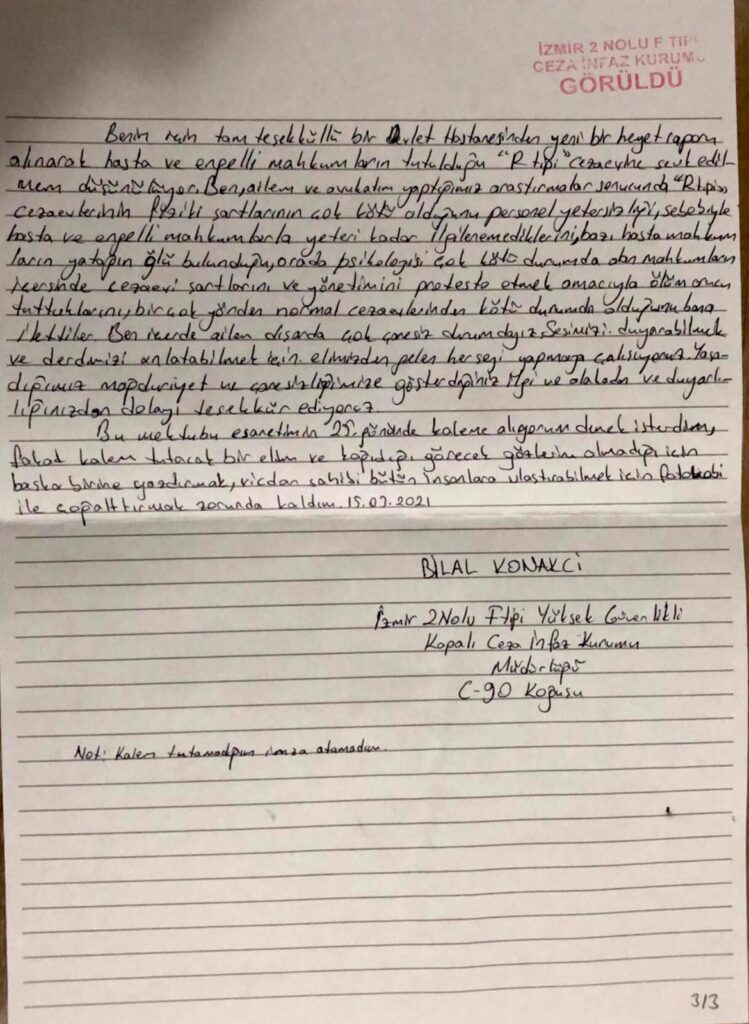 İZMİR 2 NOLU F TİPİ
CEZA İNFAZ KURUMU
GÖRÜLDÜ
Benim için tam teşekküllü bir Devlet Hastanesinden yeni bir heyet raporu
alınarak hasta ve engelli mahkumların tutulduğu "R tipi" cezaevine sevk edil-
mem düşünülüyor. Ben, ailem ve avukatım yaptığımız araştırmalar sonucunda "R tipi"
cezaevlerinin fiziki şartlarının çok kötü olduğunu personel yetersizliği, sebebiyle
hasta ve engelli mahkumlarla yeteri kadar ilgilenemediklerini, bazı hasta mahkum
ların yatağın ölü bulunduğu, orada psikolojisi çok kötü durumda olan mahkumların
içersinde cezaevi şartlarını ve yönetimini protesto etmek amacıyla ölüm orucu
tuttuklarını, bir çok yönden normal cezaevlerinden kötü durumda olduğunu bana
ilettiler. Ben içerde ailem dışarda çok çaresiz durumdayız. Sesimizi duyurabilmek
ve derdimizi anlatabilmek için elimizden gelen herşeyi yapmaya çalışıyoruz. Yaşa-
dığımız mağduriyet ve çaresizliğimize gösterdiğiniz ilgi ve alakadan ve duyarlı-
lığınızdan dolayı teşekkür ediyoruz.
Bu mektubu esaretimin 25. gününde kaleme alıyorum demek isterdim,
fakat kalem tutacak bir elim ve kağıdı görecek gözlerim olmadığı için
başka birine yazdırmak, vicdan sahibi bütün insanlara ulaştırabilmek için fotokobi
ile çoğalttırmak zorunda kaldım. 15.09.2021
BİLAL KONAKCİ
İzmir 2 Nolu F tipi Yüksek Güvenlikli
Kapalı Ceza İnfaz Kurumu
Müdürlüğü
C-90 Koğuşu
Not: Kalem tutamadığım imza atamadım.
3/3